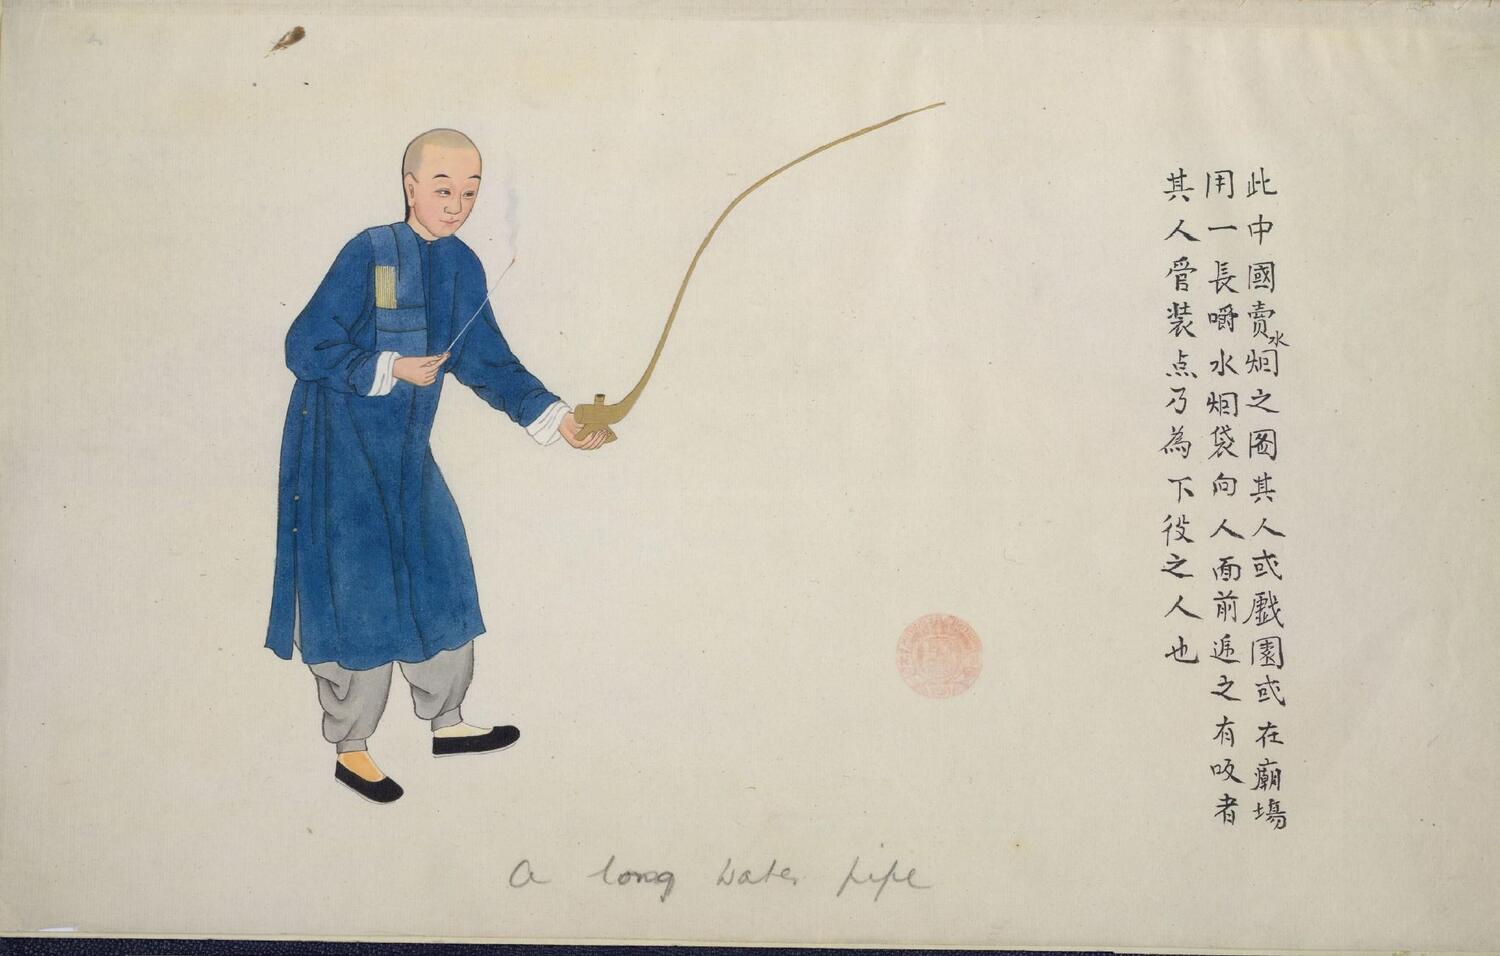 此中國賣水烟之圖其人或戲園或在廟塲
用一長嚼水烟袋向人面前遞之有吸者
其人管装点乃為下役之人也
a long water pipe